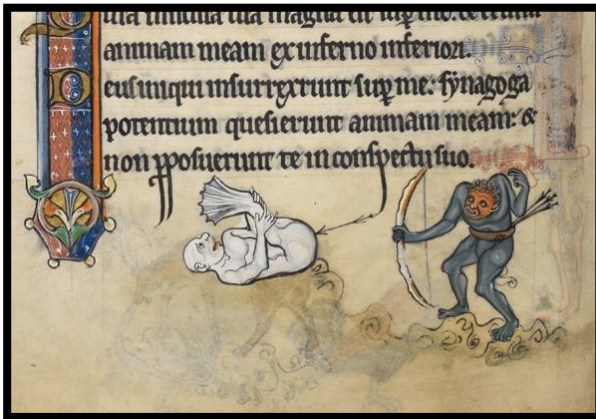 magna
animam meam ex inferno inferiori.
Deus iniqui insurrexerunt sup me: synagoga
potentium quesierunt animam meam: &
non pposuerunt te in conspectu suo.